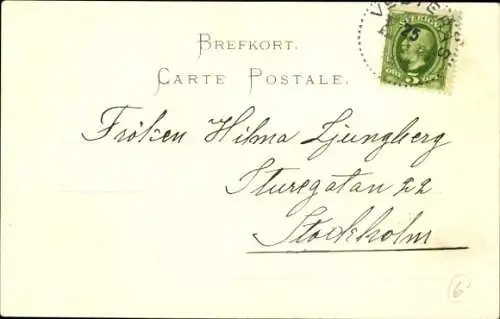 BREFKORT.
CARTE POSTALE.
SVERIGE
25
5
Fröken Hilma Ljungberg
Sturegatan 22
Stockholm
6